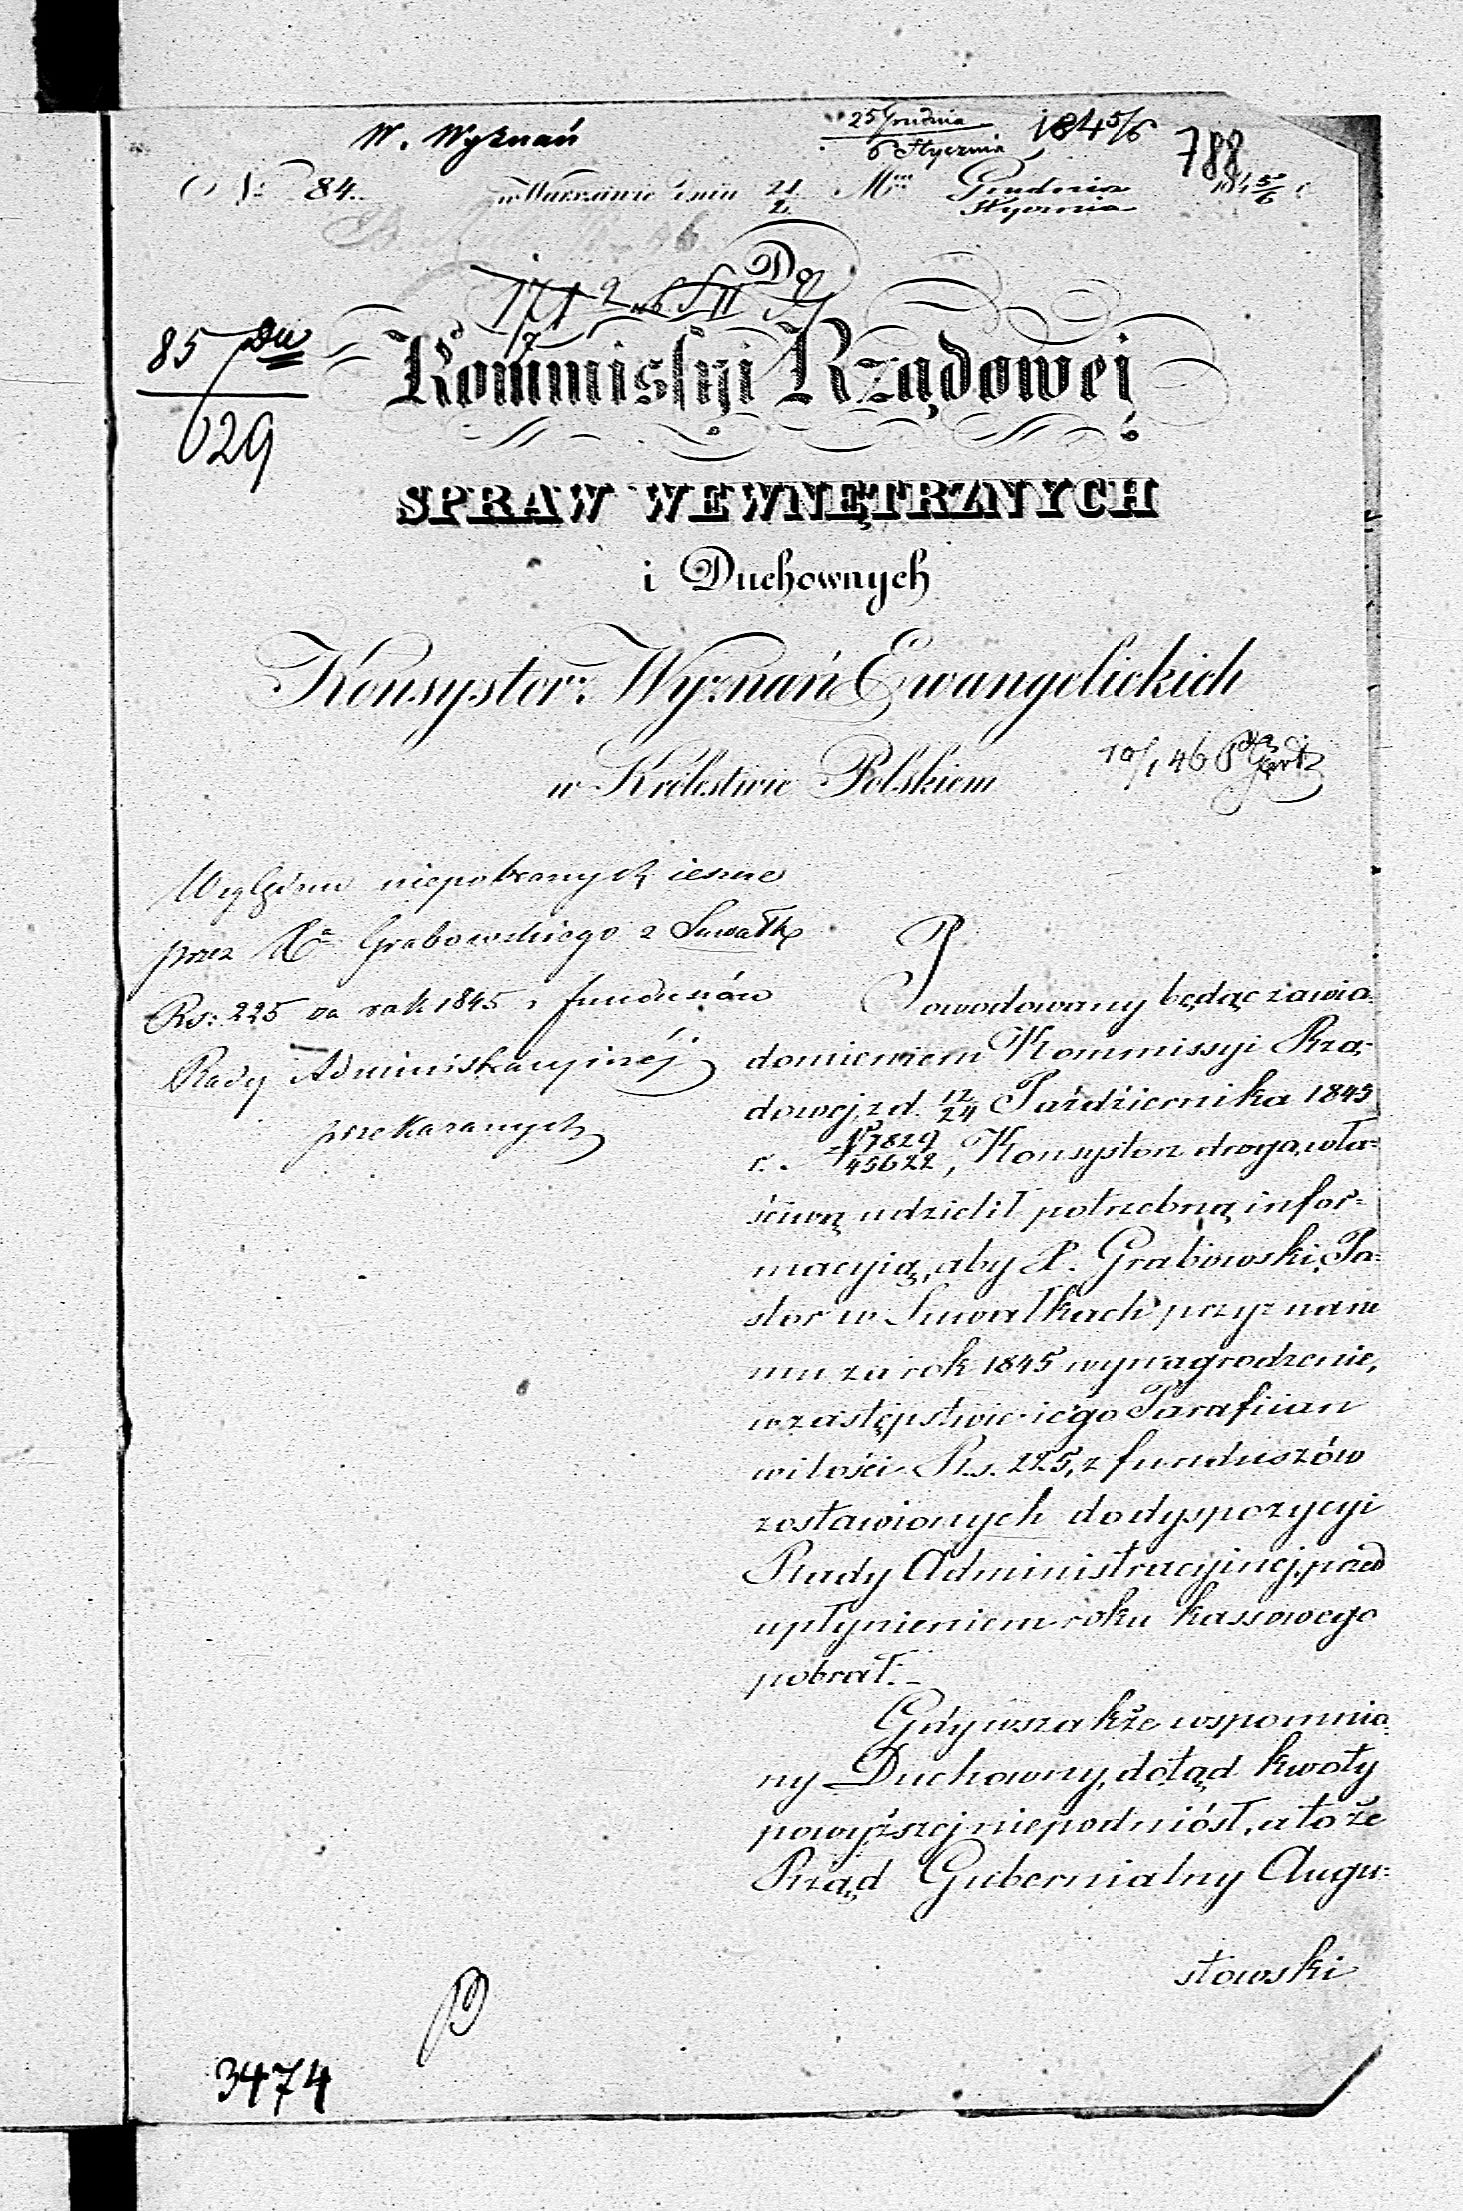 W. Wyznań
25 Grudnia
6 Stycznia 1845/6
788
No 84. w Warszawie dnia 21/2 Mca Grudnia
Stycznia 1845/6 r.
Do
85
629
Kommissyi Rządowej
SPRAW WEWNĘTRZNYCH
i Duchownych
Konsystorz Wyznań Ewangelickich
w Królestwie Polskiem
10/1 46
Względem niepobranych ieszcze
przez Xa Grabowskiego z Suwałk
Rs: 225 za rok 1845 z funduszów
Rady Administracyjnéj
przekazanych
Powodowany będąc zawia-
domieniem Kommissyi Rzą-
dowej, z d. 12/24 Października 1845
r. N 7829/45622, Konsystorz drogą wła-
ściwą udzielił potrzebną infor-
macyią, aby X. Grabowski, Pa-
stor w Suwałkach przyznane
mu za rok 1845 wynagrodzenie,
w zastępstwie iego Parafiian
w ilości Rs. 225, z funduszów
zostawionych do dyspozycyi
Rady Administracyjnej, przed
upłynieniem roku kassowego
pobrał.-
Gdy wszakże wspomnia-
ny Duchowny, dotąd kwoty
powyższej niepodniósł, a to że
Rząd Gubernialny Augu-
stowski
3474